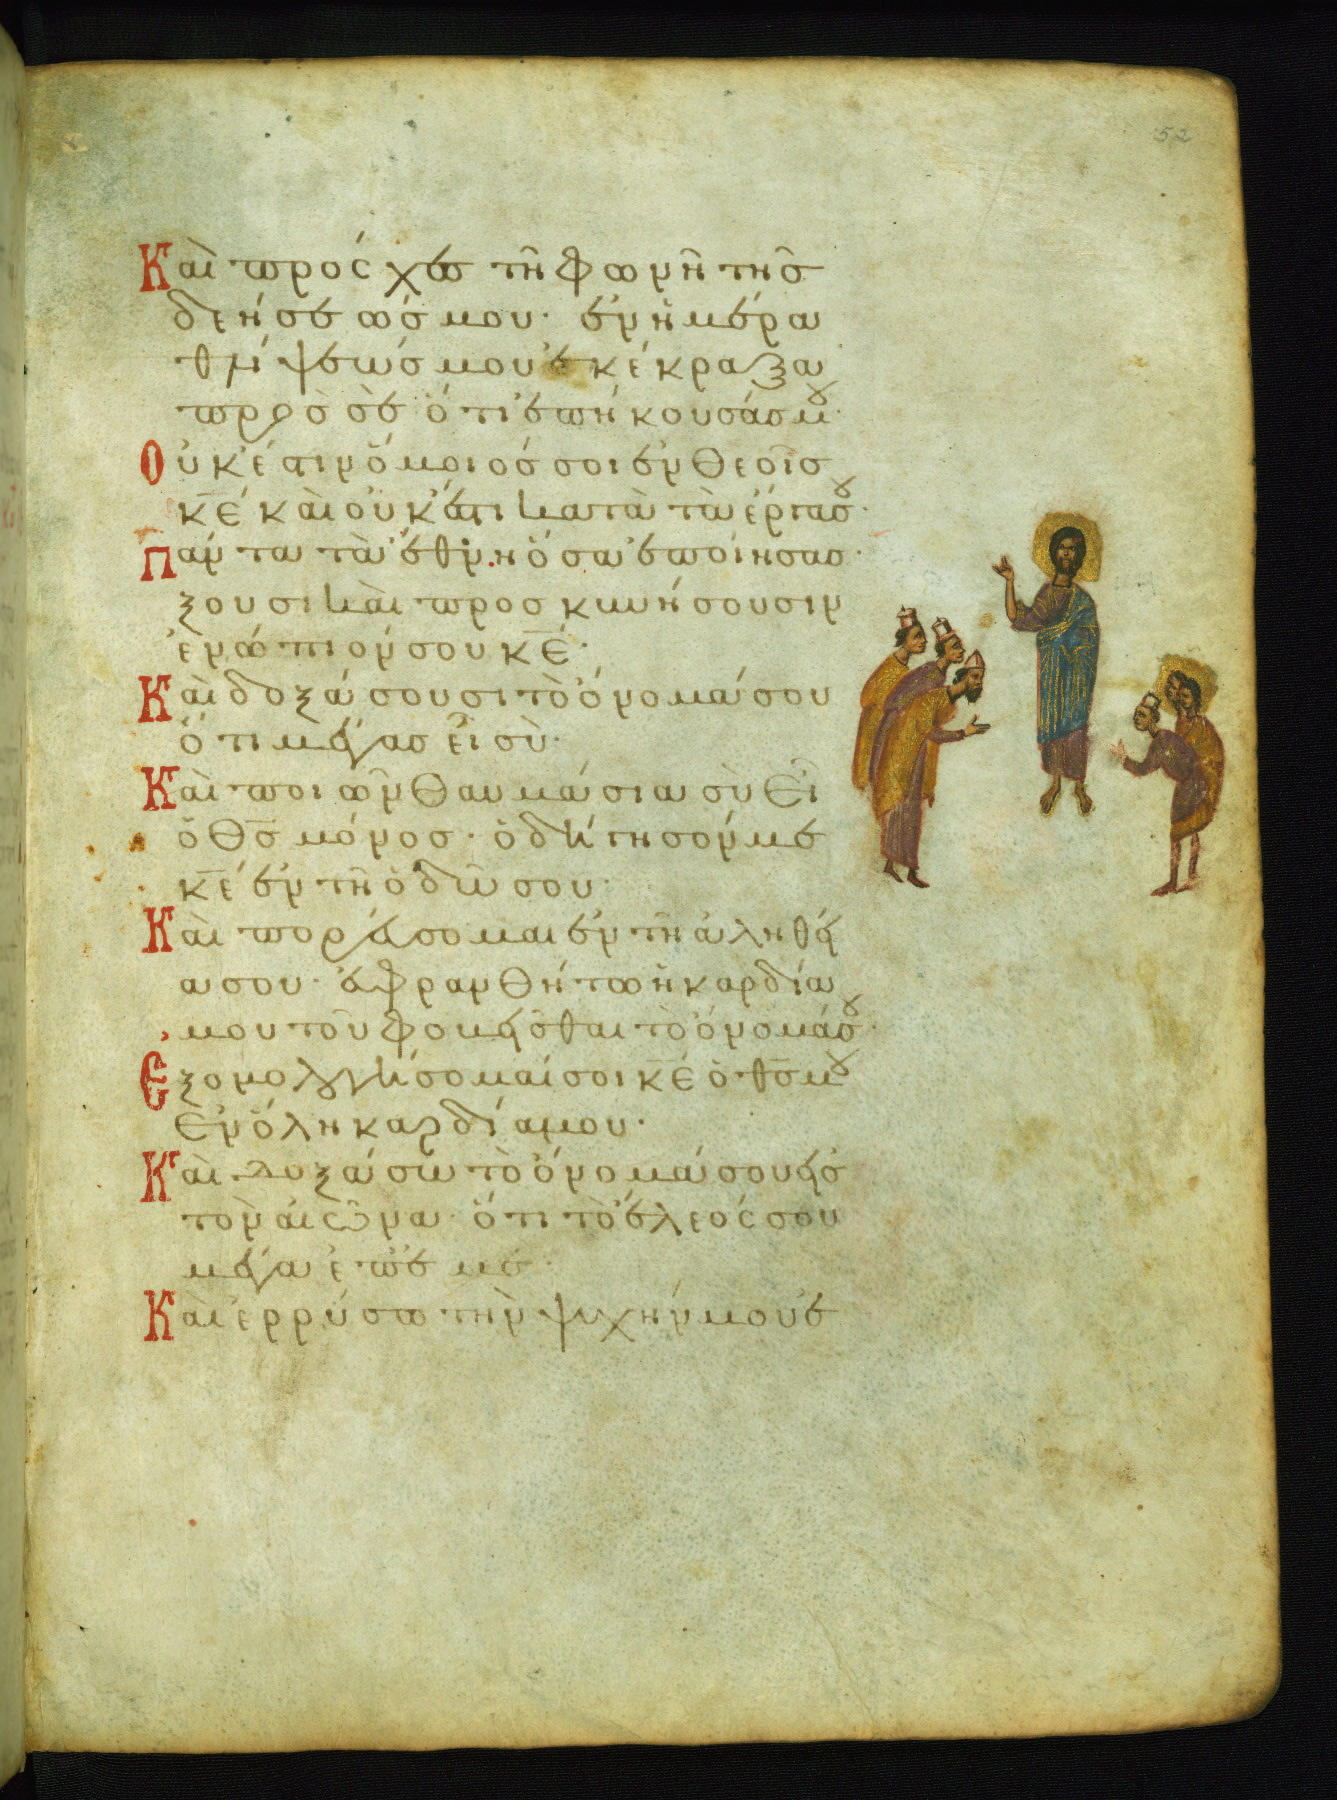 52
Καὶ πρόσχες τῆ φωνῆ τῆς
δεήσεώς μου· ἐν ἡμέρα
θλήψεώς μου ἐκέκραξα
πρὸς σὲ ὅτι ἐπήκουσάς μου·
Οὐκ ἔστιν ὅμοιός σοι ἐν θεοῖς
κ̅ε̅ καὶ οὐκ ἔστι κατὰ τὰ ἔργα σου·
Πάντα τὰ ἔθνη ὅσα ἐποίησας·
ξουσι καὶ προσκυνήσουσιν
ἐνώπιόν σου κ̅ε̅·
Καὶ δοξάσουσι τὸ ὄνομά σου
ὅτι μέγας εἶ σὺ·
Καὶ ποιῶν θαυμάσια σὺ εἶ
ὁ θ̅ς̅ μόνος· ὁδήγησόν με
κ̅ε̅ ἐν τῆ ὁδῶ σου·
Καὶ πορεύσομαι ἐν τῆ ἀληθεί
α σου· εὐφρανθήτω ἡ καρδία
μου τοῦ φοβεῖσθαι τὸ ὄνομά σου·
Εξομολογήσομαί σοι κ̅ε̅ ὁ θ̅ς̅ μου
ἐν ὅλη καρδία μου·
Καὶ δοξάσω τὸ ὄνομά σου εἰς
τὸν αἰῶνα· ὅτι τὸ ἔλεός σου
μέγα ἐπ ἐμέ·
Καὶ ἐρρύσω τὴν ψυχήν μου ἐ